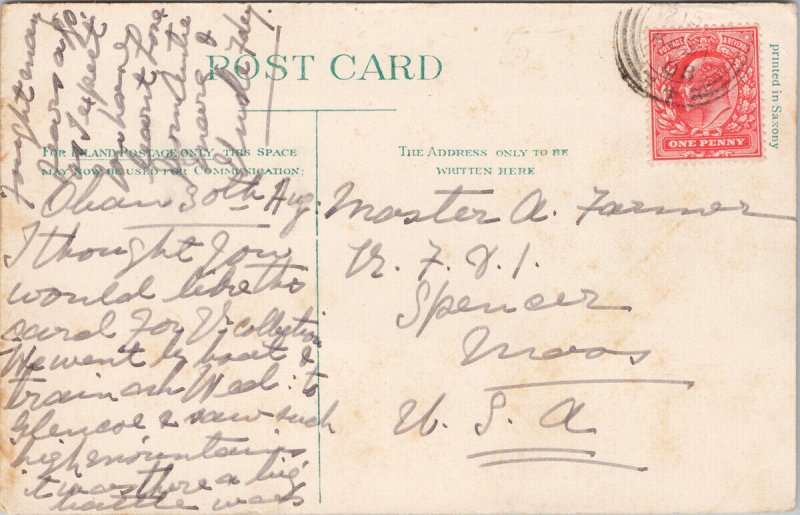 POST CARD
FOR INLAND POSTAGE ONLY, THIS SPACE
MAY NOW BE USED FOR COMMUNICATION:
THE ADDRESS ONLY TO BE
WRITTEN HERE
POSTAGE & REVENUE
ONE PENNY
printed in Saxony
Oban 30th Aug.
I thought you
would like this
card for Yr collection
We went by boat &
train on Wed: to
Glencoe & saw such
high mountains
it was there a big
battle was
fought many
years ago.
I expect
home
Auntie
&
Master A. Farmer
R. F. D. 1.
Spencer
Mass
U. S. A